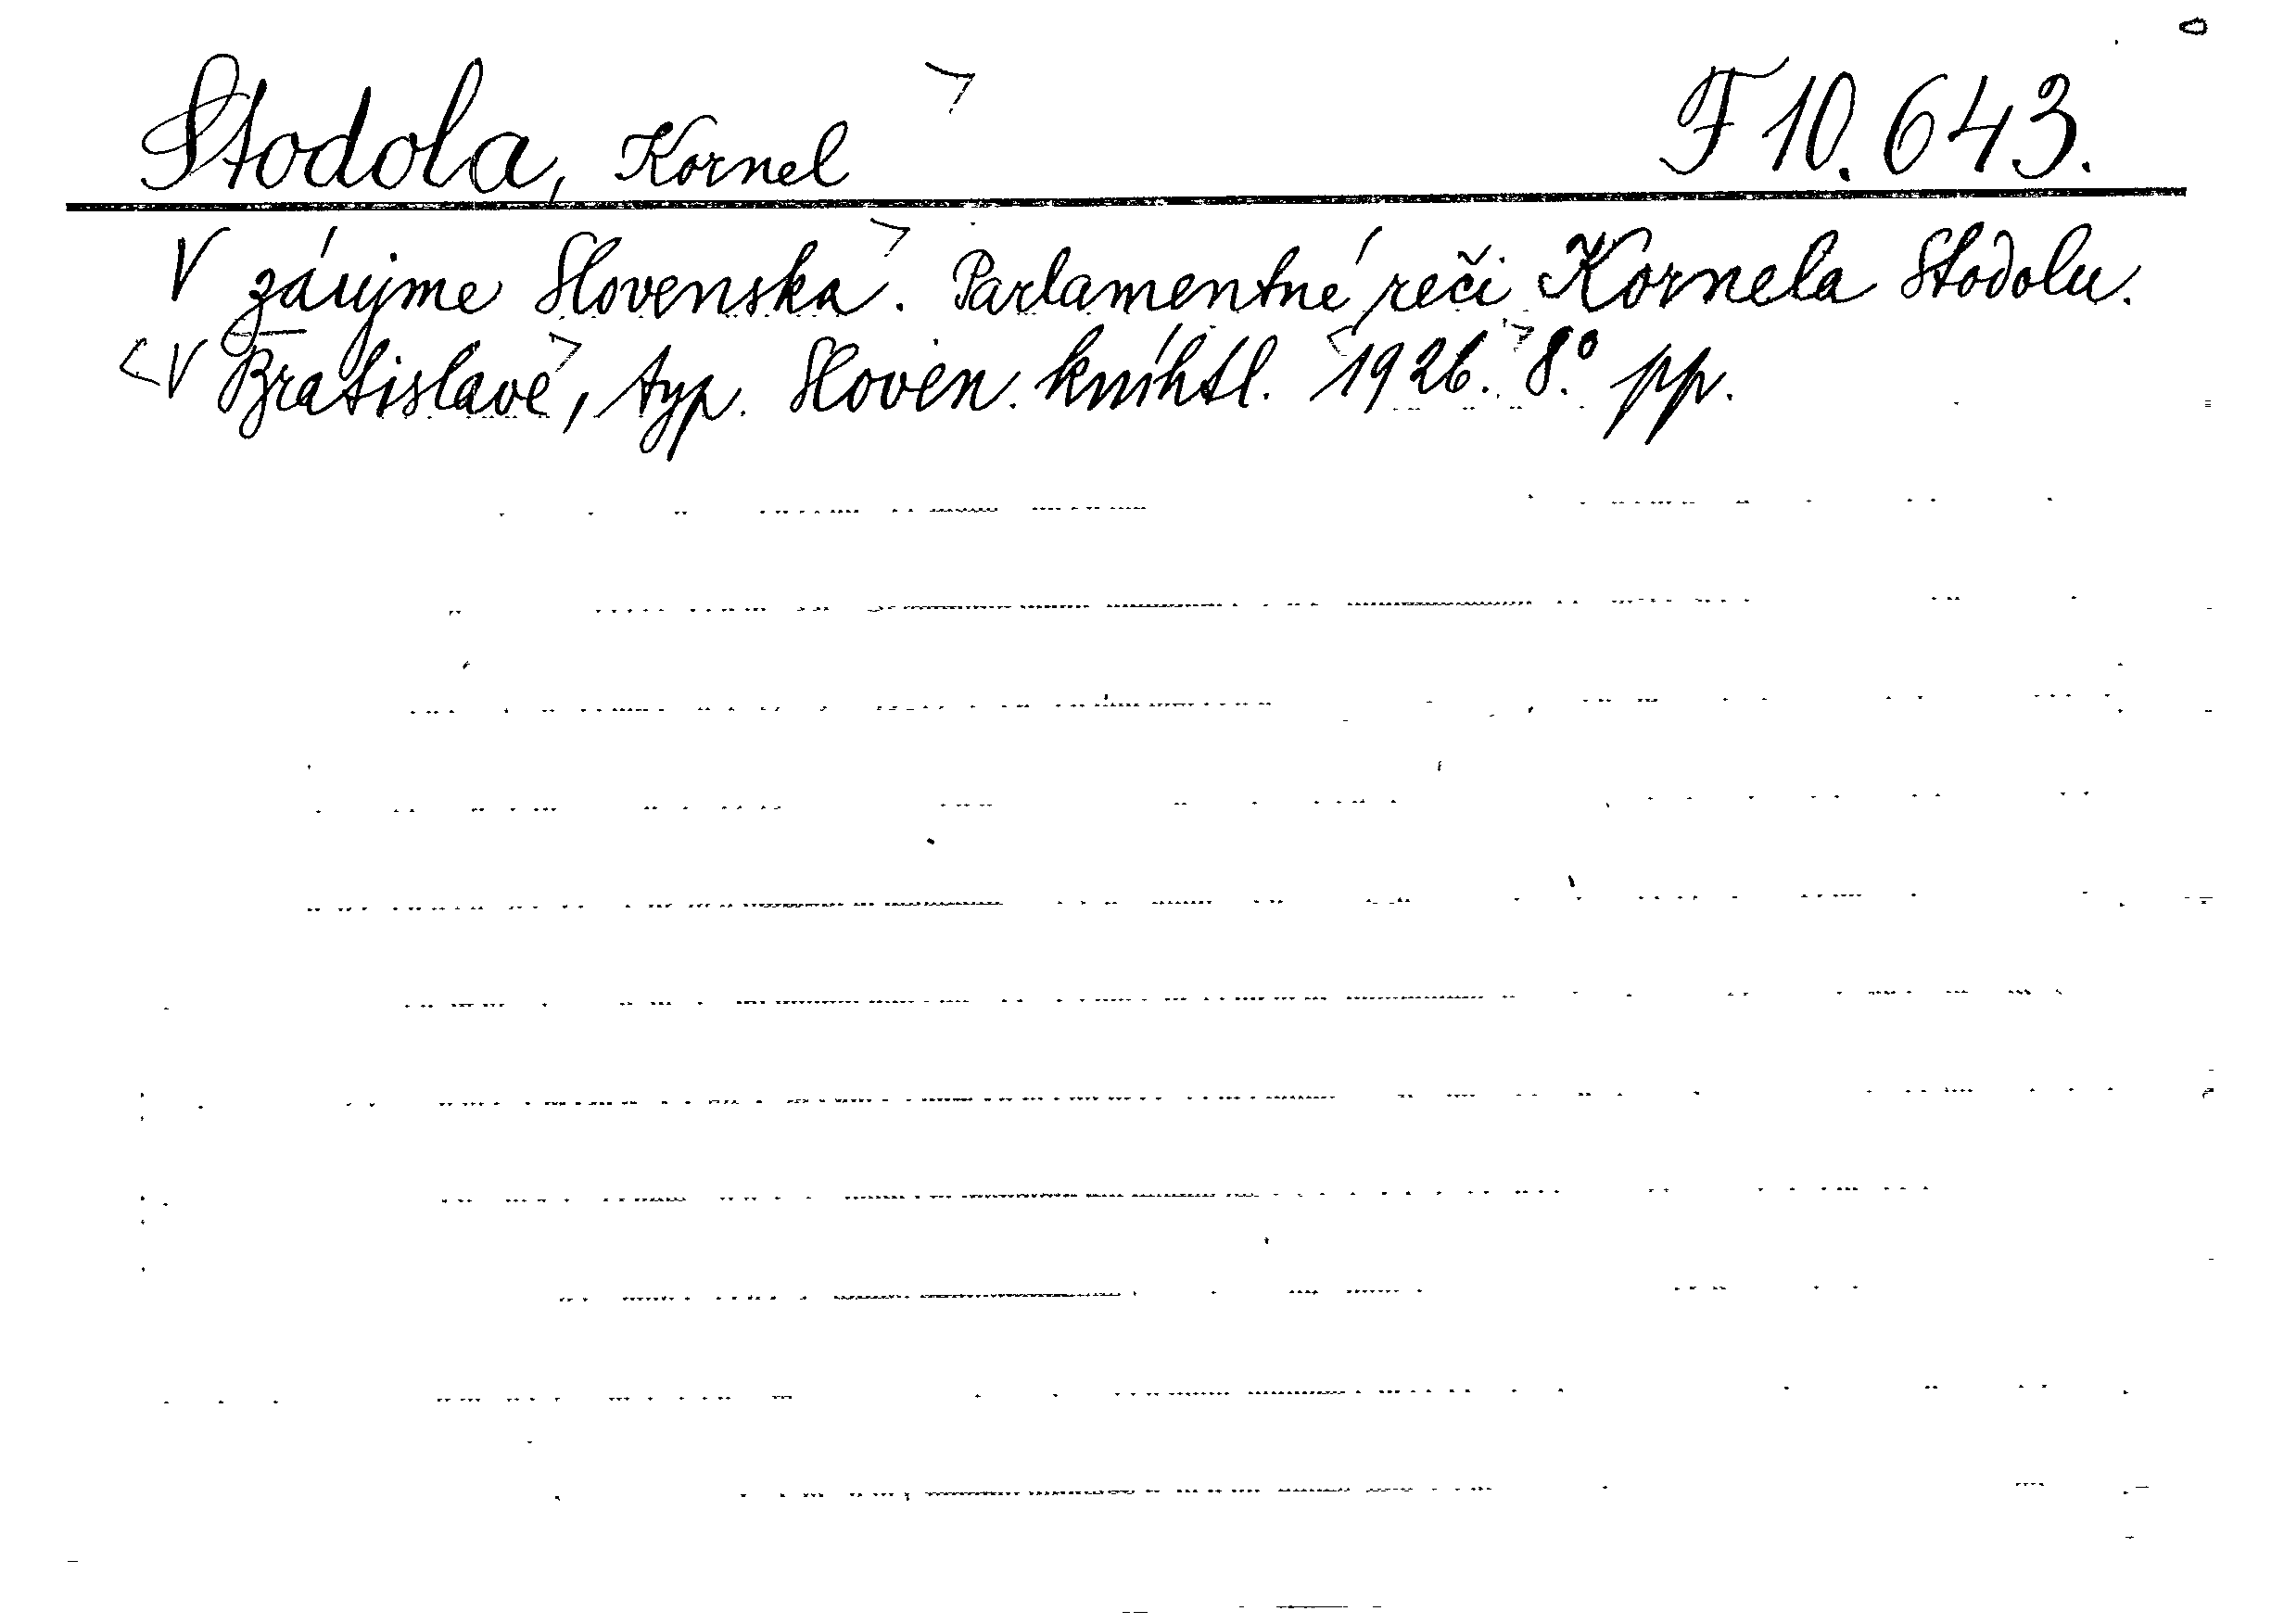 Stodola, Kornel F 10.643.
V záujme Slovenska. Parlamentné reči Kornela Stodolu.
V Bratislave, typ. Sloven. kníhtl. 1926. 8° pp.